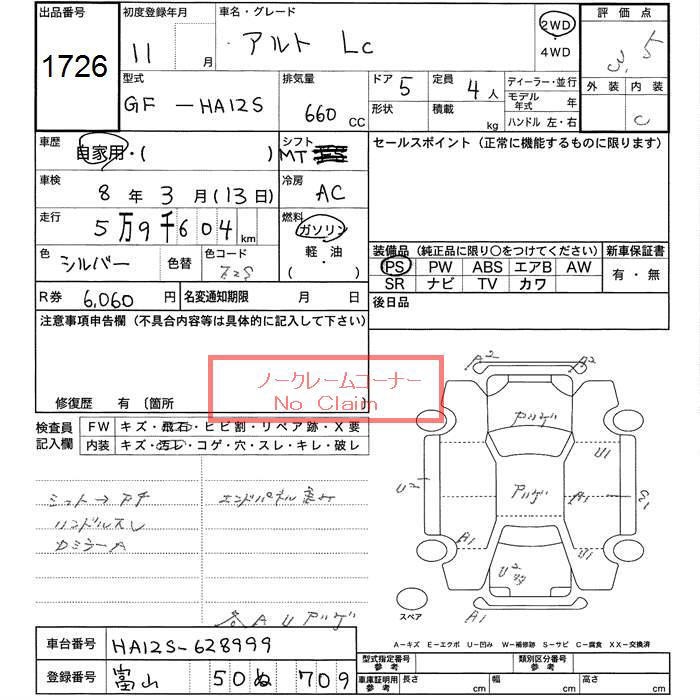 出品番号 初度登録年月 車名・グレード 評価点
1726 11 月 アルト Lc 2WD 3.5
4WD
型式 排気量 ドア 5 定員 4 人 ディーラー・並行 外装 内装
GF-HA12S 660 CC 形状 積載 kg モデル年式 年 C
ハンドル 左・右
車歴 自家用・( ) シフト MT セールスポイント(正常に機能するものに限ります)
車検 8 年 3 月(13日) 冷房 AC
走行 5万9千604 km 燃料 ガソリン
軽・油
( )
色 シルバー 色替 色コード Z2S 装備品(純正品に限り○をつけてください) 新車保証書
PS PW ABS エアB AW 有・無
SR ナビ TV カワ
R券 6,060 円 名変通知期限 月 日 後日品
注意事項申告欄(不具合内容等は具体的に記入して下さい)
ノークレームコーナー
No Claim
修復歴 有 〔箇所
検査員記入欄 FW キズ・飛石・ヒビ割・リペア跡・X要
内装 キズ・汚レ・コゲ・穴・スレ・キレ・破レ
A2 A2
アルゲ
U1
U2 アルゲ A1 S1
A1 U1
U2
A1
シュト→アチ エンドパネル
ハンドルスレ
カミラーA
A U アルゲ
スペア
A-キズ E-エクボ U-凹み W-補修跡 S-サビ C-腐食 XX-交換済
車台番号 HA12S-628999
登録番号 富山 50 ぬ 709
型式指定番号 参考 類別区分番号 参考
車庫証明用 参考 長さ cm 幅 cm 高さ cm